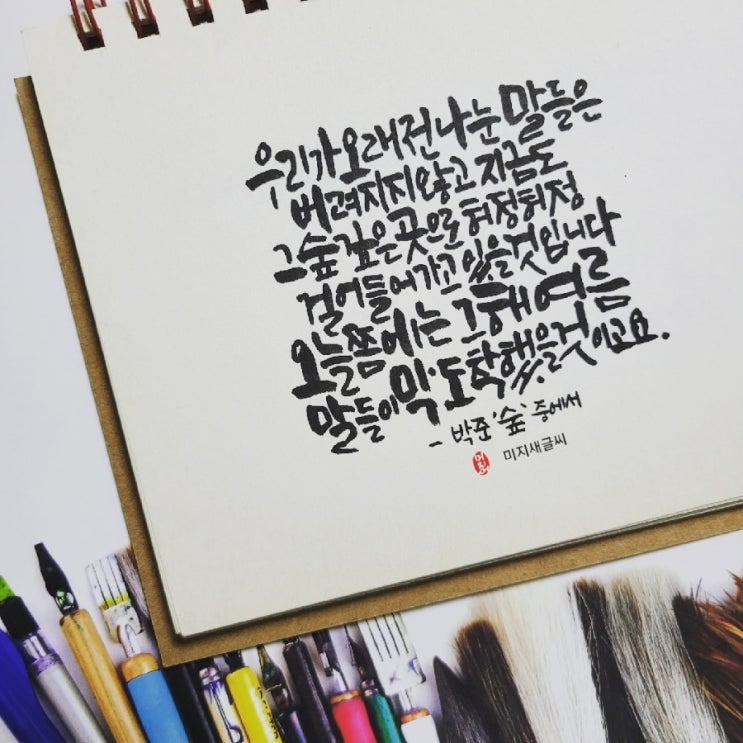 우리가 오래 전 나눈 말들은
버려지지 않고 지금도
그 숲 깊은 곳으로 허정허정
걸어들어가고 있을 것입니다
오늘쯤에는 그해 여름
말들이 막 도착했을 것이고요.
- 박준 '숲' 중에서
미지새글씨